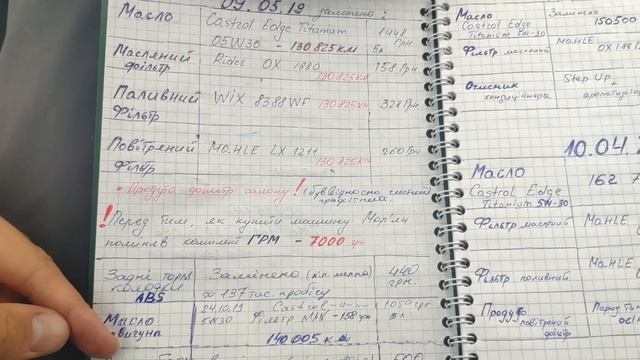 09.05.19 замінено:
Масло Castrol Edge Titanium 1448 грн
05W30 - 130 825 км 5л
Масляний фільтр Rider OX 188D 158 грн
130 825км
Паливний фільтр WIX 8388WF 130 825км 328 грн
Повітряний фільтр MAHLE LX 1211 260 грн
130 825км
* Продута фільтр салону!
! Перед тим, як купити машину
поміняв комплект ГРМ - 7000
Задні торм. колодки Замінено 440 грн.
ABS ∞ 137 тис. пробігу
Масло двигуна 24.10.19 Castrol -"-"- 1050 грн
5W30 Фільтр MAN - 158 грн 5л
140 005 км
500
Масло Замінено
Castrol Edge 150500
Titanium 5W-30
Фільтр масляний MAHLE OX 188
Очисник кондиціонера Step Up
ароматизатор
10.04.2
Масло 162 7
Castrol Edge
Titanium 5W-30
Фільтр масляний MAHLE
Фільтр паливний MAHL
Продув повітряний фільтр Перед